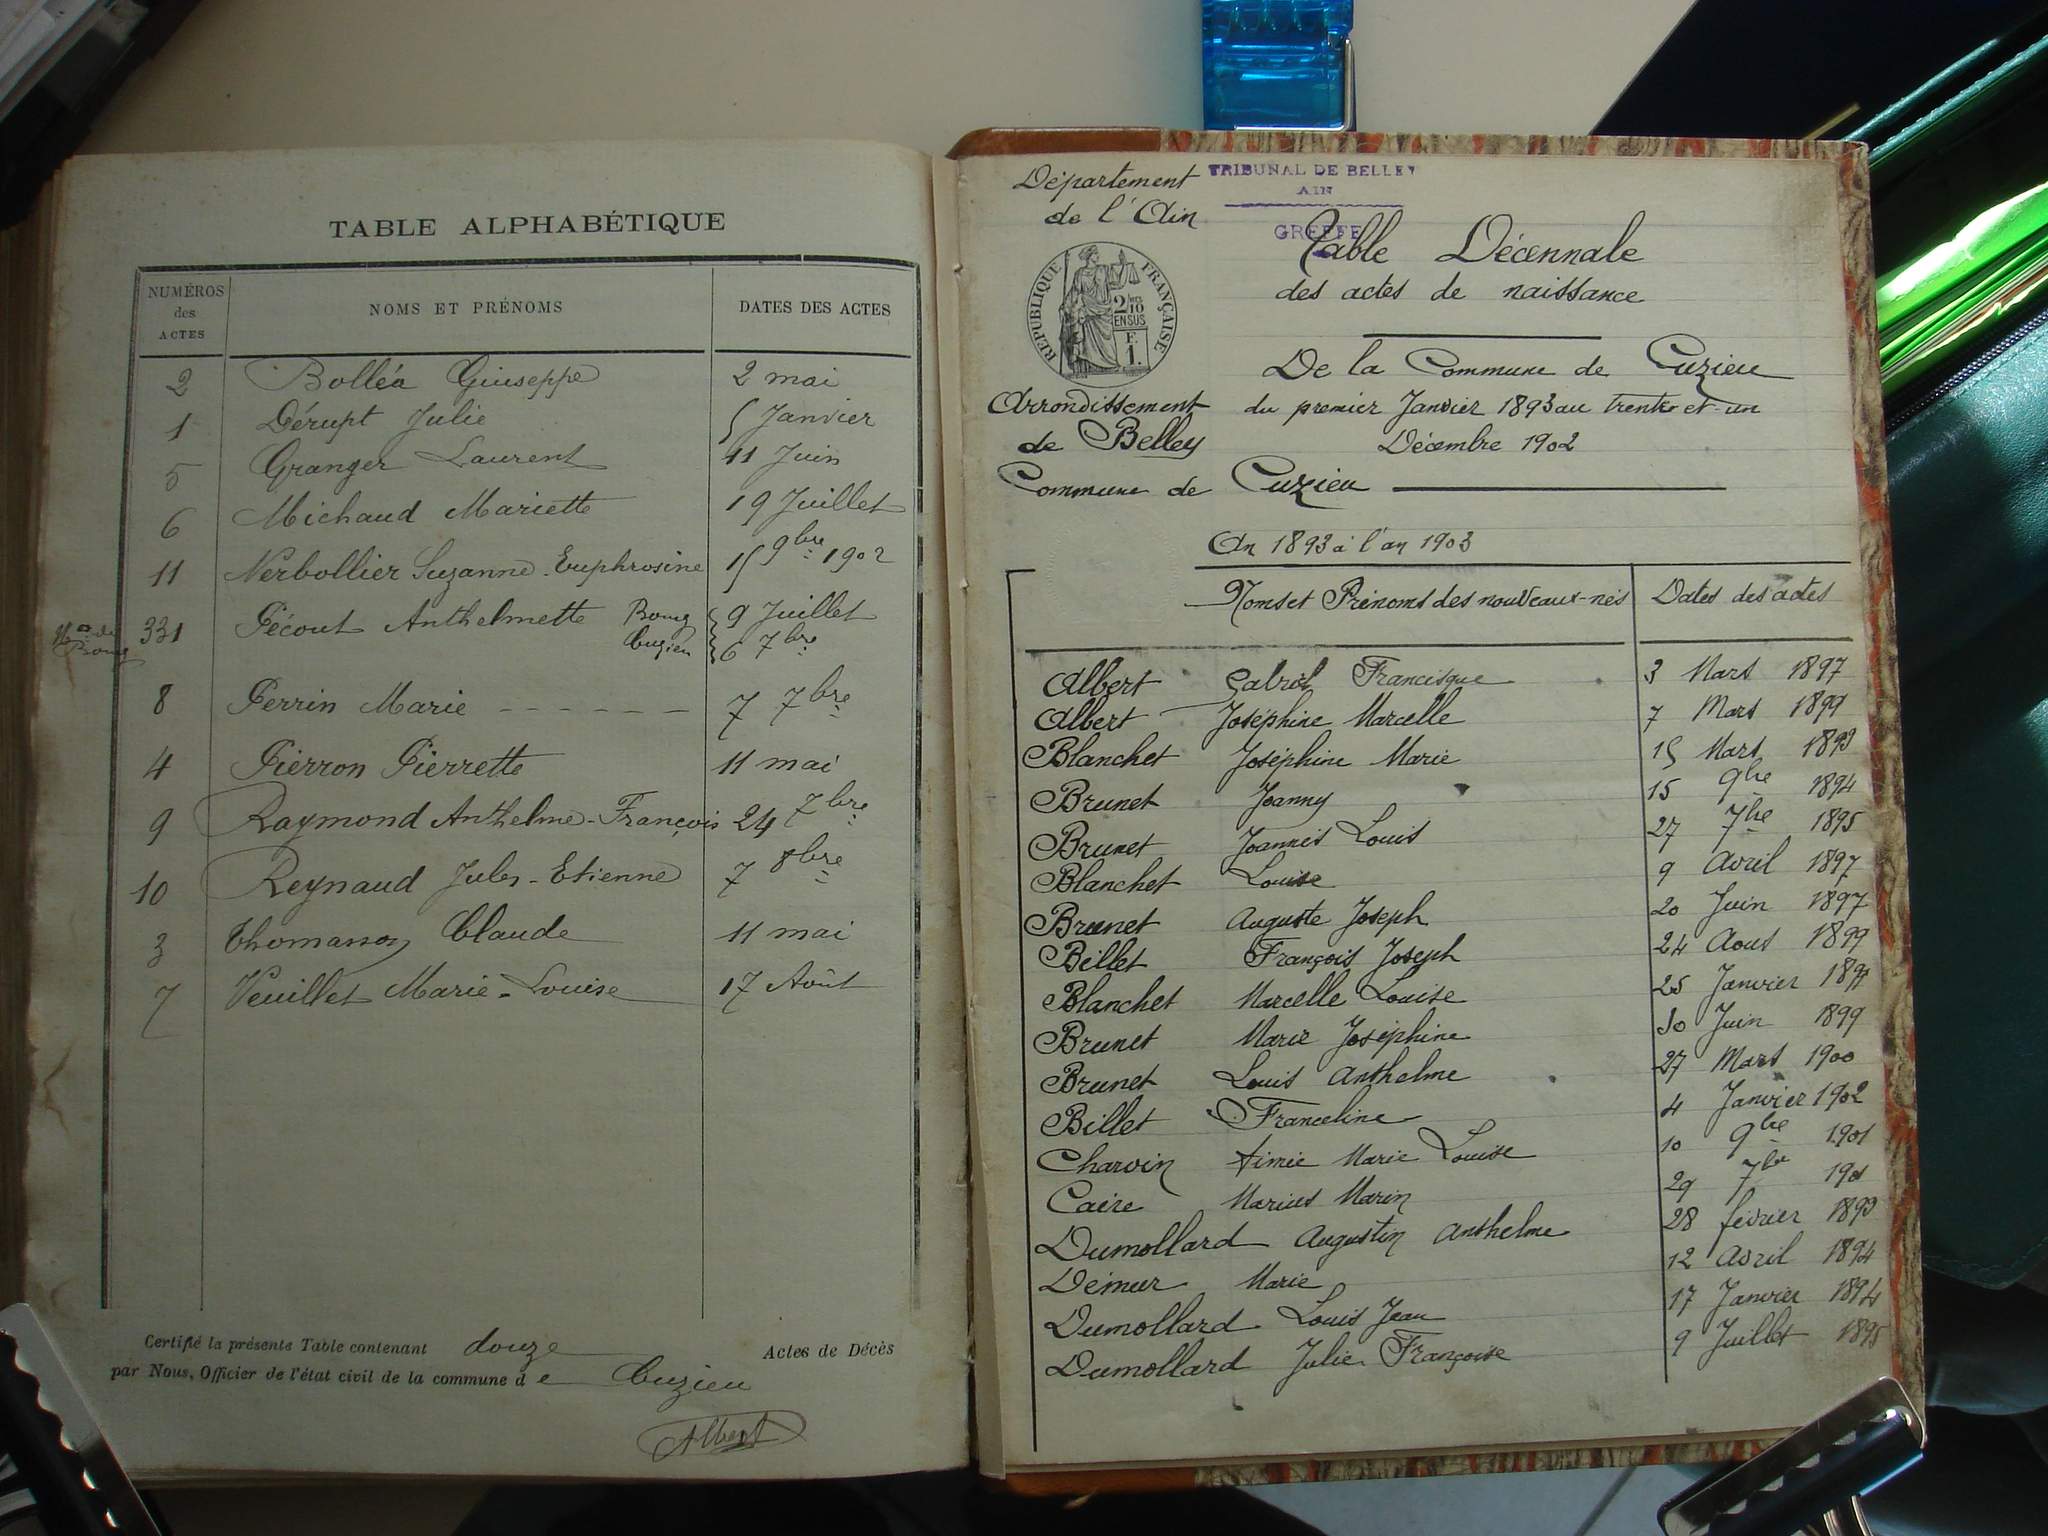 TABLE ALPHABÉTIQUE
NUMÉROS des ACTES NOMS ET PRÉNOMS DATES DES ACTES
2 Bolléa Giuseppe 2 mai
1 Dérupt Julie 5 Janvier
5 Granger Laurent 11 Juin
6 Michaud Mariette 19 Juillet
11 Nerbollier Suzanne-Euphrosine 15 9bre 1902
331 Pécout Anthelmette Bourg 9 Juillet
Cuzieu 6 7bre
8 Perrin Marie - - - - - - 7 7bre
4 Pierron Pierrette 11 mai
9 Raymond Anthelme-François 24 7bre
10 Reynaud Jules-Etienne 7 8bre
3 Thomasson Claude 11 mai
7 Veuillet Marie-Louise 17 Août
Certifié la présente Table contenant douze Actes de Décès
par Nous, Officier de l'état civil de la commune de Cuzieu
Albert
Département
de l'Ain
TRIBUNAL DE BELLEY
AIN
GREFFE
RÉPUBLIQUE FRANÇAISE
2/10
EN SUS
F.
1.
Table Décennale
des actes de naissance
De la Commune de Cuzieu
Arrondissement
de Belley
du premier Janvier 1893 au trente et un
Décembre 1902
Commune de Cuzieu
An 1893 à l'an 1903
Noms et Prénoms des nouveaux-nés Dates des actes
Albert Francisque 3 Mars 1897
Albert Joséphine Marcelle 7 Mars 1899
Blanchet Joséphine Marie 15 Mars 1893
Brunet Joanny 15 9bre 1894
Brunet Joannès Louis 27 7bre 1895
Blanchet Louise 9 Avril 1897
Brunet Auguste Joseph 20 Juin 1897
Billet François Joseph 24 Aout 1899
Blanchet Marcelle Louise 25 Janvier
Brunet Marie Joséphine 30 Juin 1899
Brunet Louis Anthelme 27 Mars 1900
Billet Franceline 4 Janvier 1902
Charvin Aimée Marie Louise 10 9bre 1901
Caire Marius Marin 29 7bre
Dumollard Augustin Anthelme 28 février 1893
Démeur Marie 12 Avril 1894
Dumollard Louis Jean 17 Janvier 1894
Dumollard Julie Françoise 9 Juillet 1895